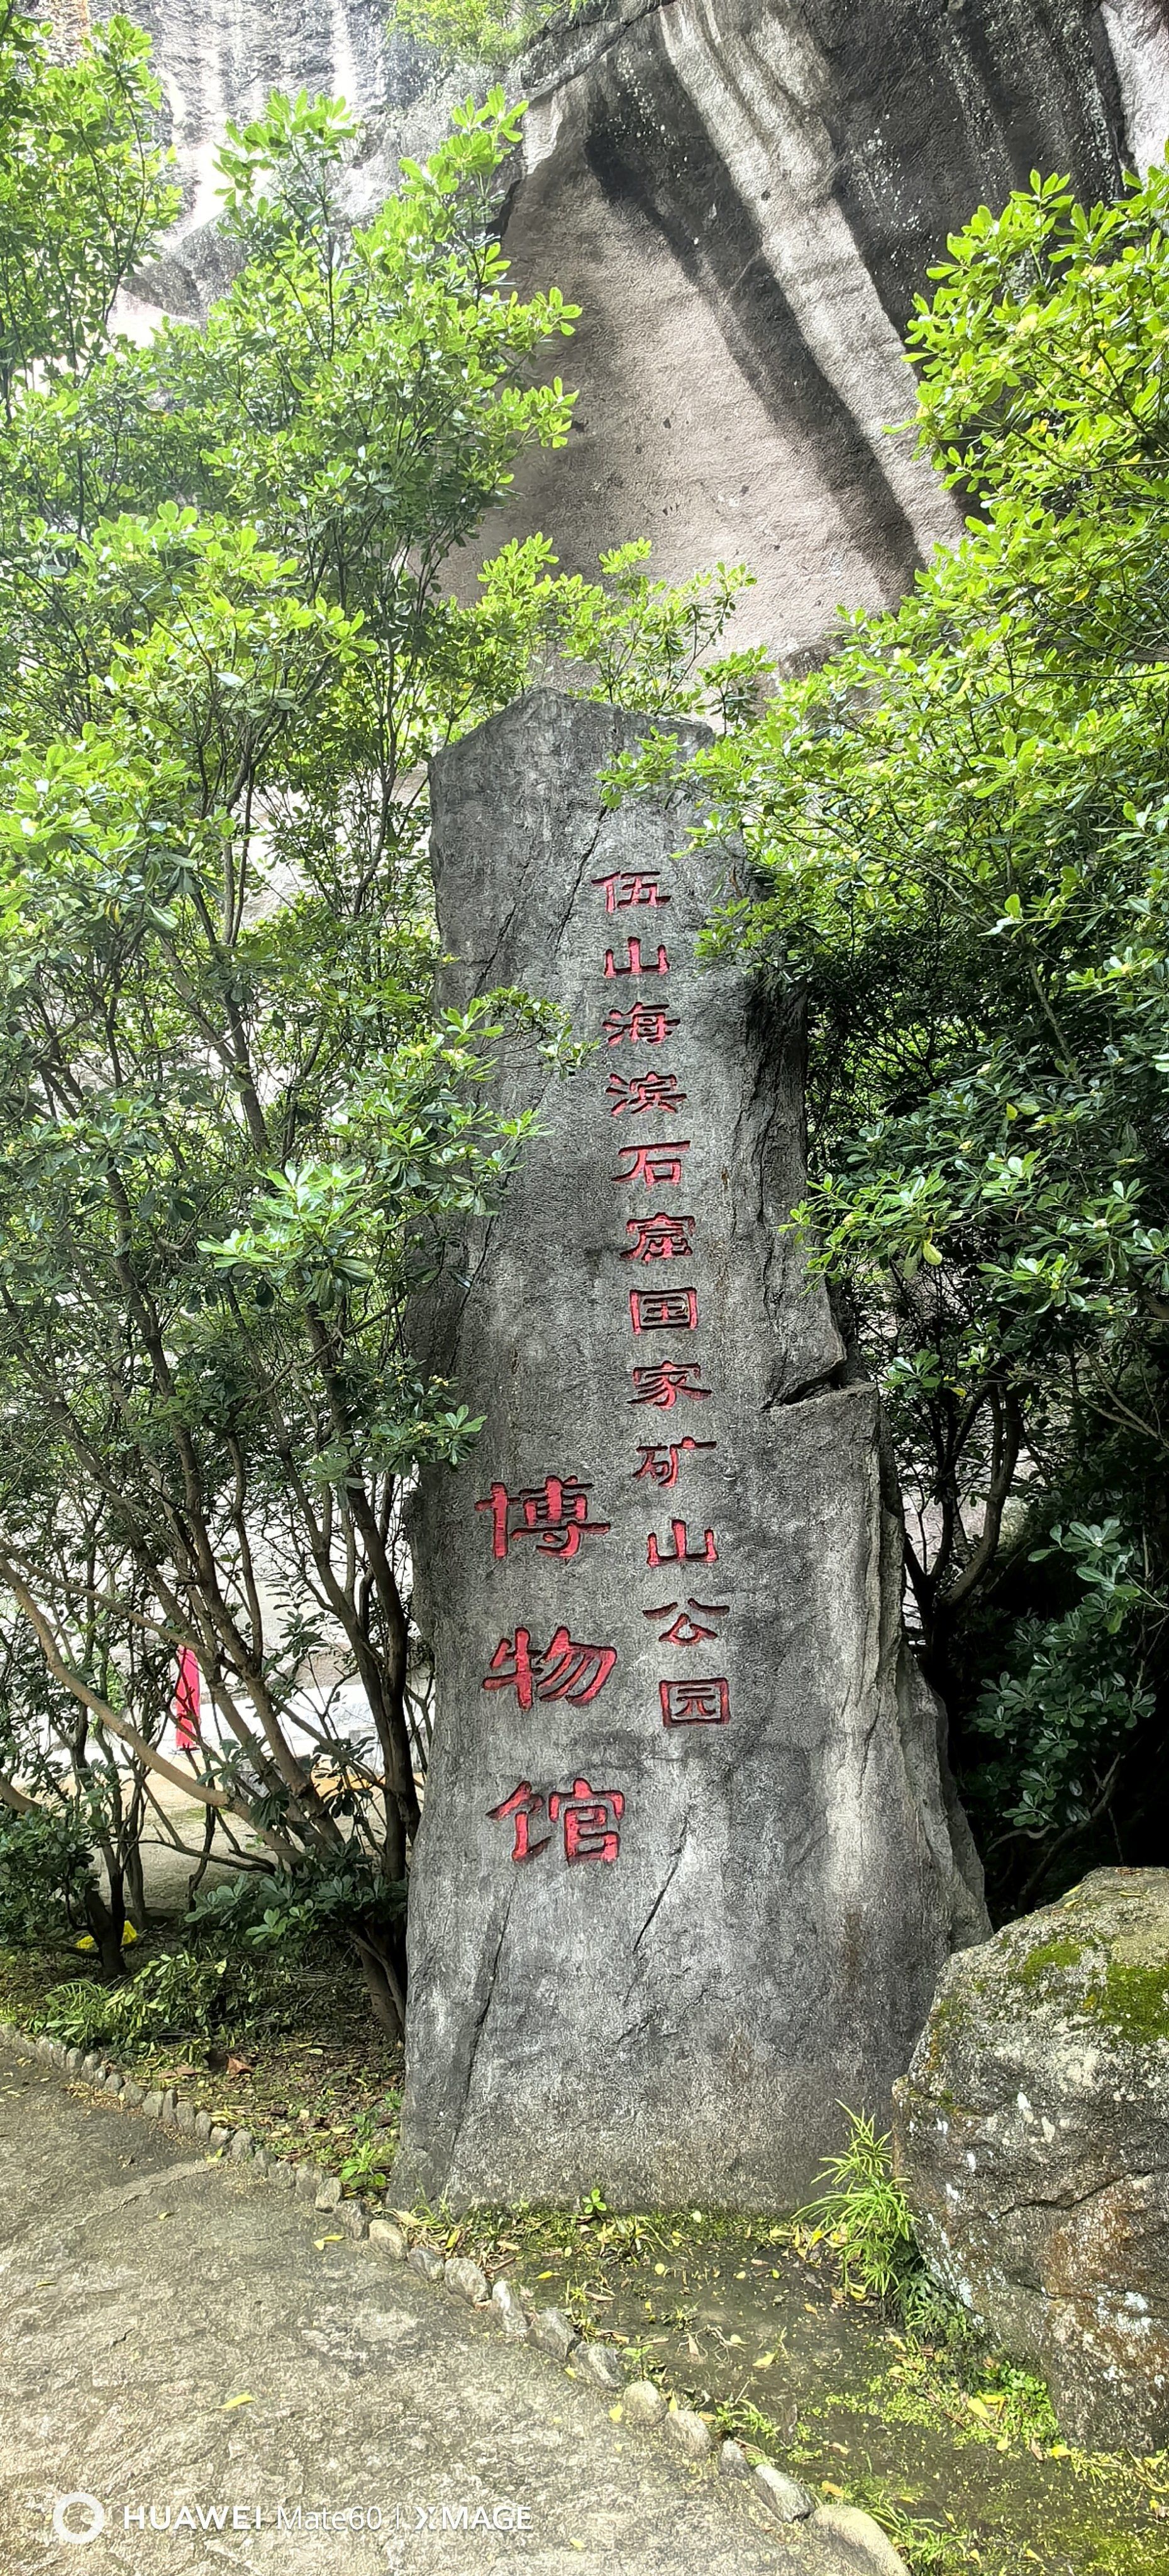 伍山海滨石窟国家矿山公园
博物馆
HUAWEI Mate60 | XMAGE